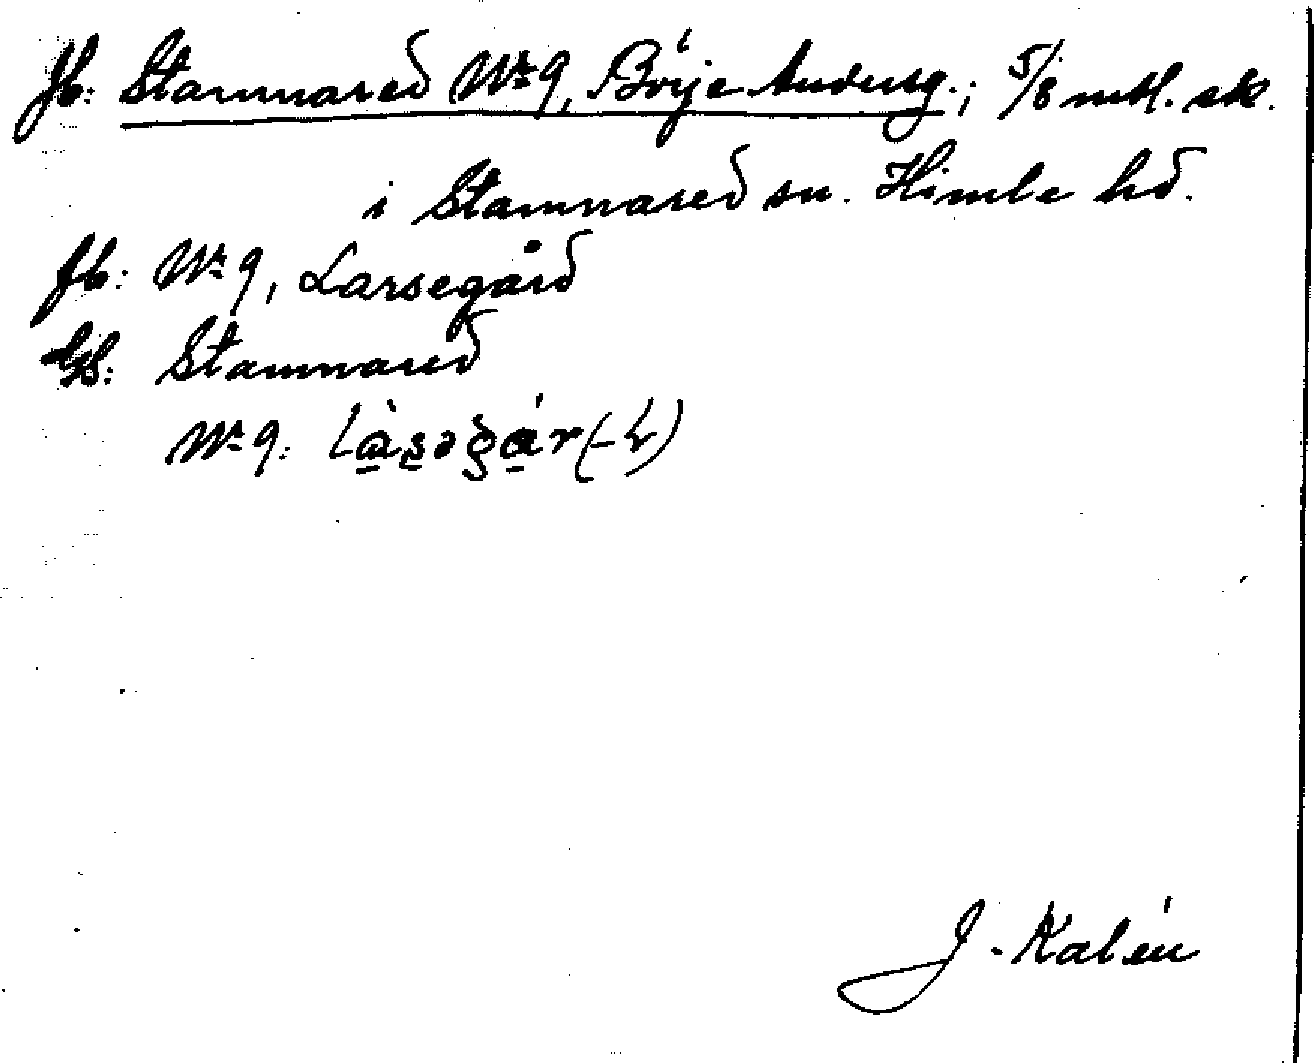 Jb: Stamnared Nr 9, Börje Andersg.; 5/8 mtl. sk.
i Stamnared sn. Himle hd.
fb: Nr 9, Larsegård
GS: Stamnared
Nr 9:
J. Kalén